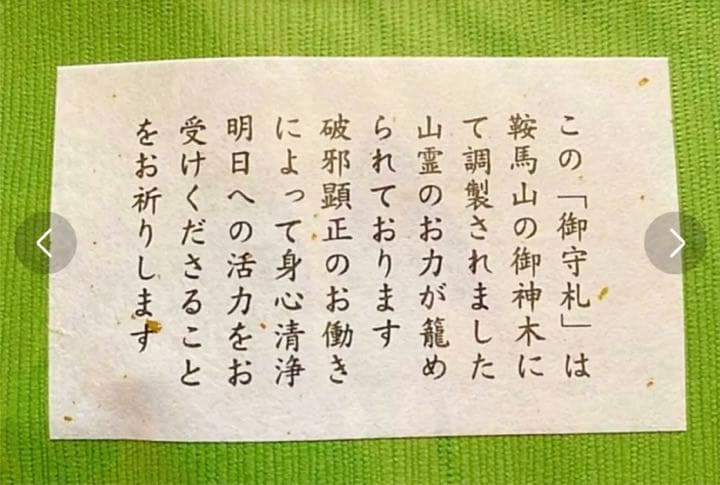 この「御守札」は
鞍馬山の御神木に
て調製されました
山霊のお力が籠め
られております
破邪顕正のお働き
によって身心清浄
明日への活力をお
受けくださること
をお祈りします